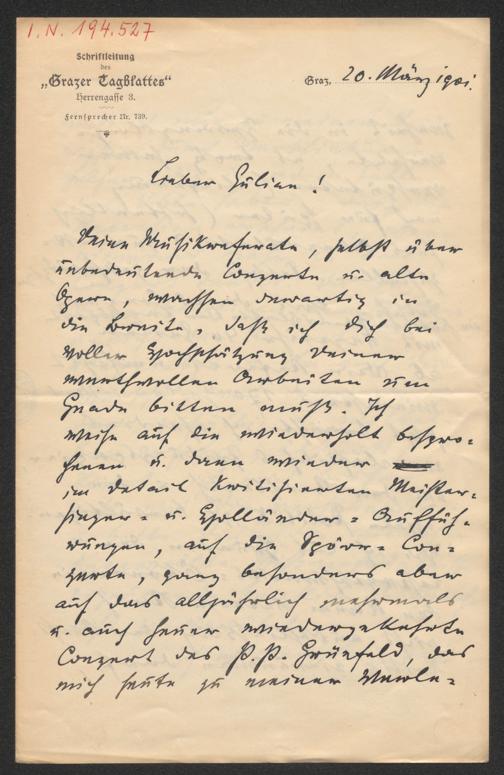 I. N. 194.527
Schriftleitung
des
„Grazer Tagblattes“
Herrengasse 3.
Fernsprecher Nr. 139.
Graz, 20. März 1901.
Lieber Julian!
Deine Musikreferate, selbst über
unbedeutende Conzerte u. alte
Opern, wachsen derartig in
die Breite, daß ich Dich bei
voller Hochschätzung Deiner
werthvollen Arbeiten um
Gnade bitten muß. Ich
weise auf die wiederholt bespro-
chenen u. dann wieder
im Detail kritisierten Meister-
singer- u. Holländer-Auffüh-
rungen, auf die Spörr-Con-
zerte, ganz besonders aber
auf das alljährlich mehrmals
u. auch heuer wiedergekehrte
Conzert des P. P. Grünfeld, das
mich heute zu meiner